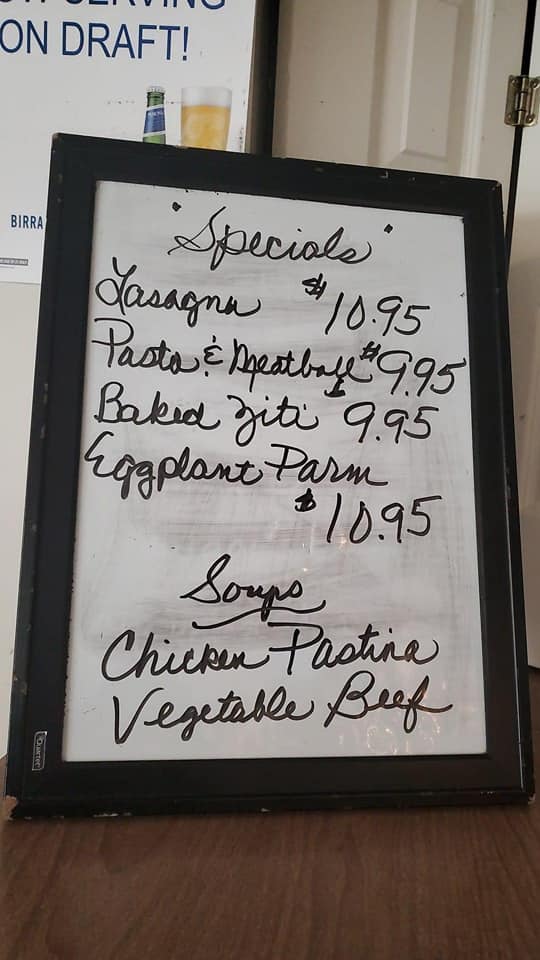 ON DRAFT!
BIRRA
"Specials"
Lasagna $10.95
Pasta & Meatball $9.95
Baked Ziti 9.95
Eggplant Parm
$10.95
Soups
Chicken Pastina
Vegetable Beef
Quartet